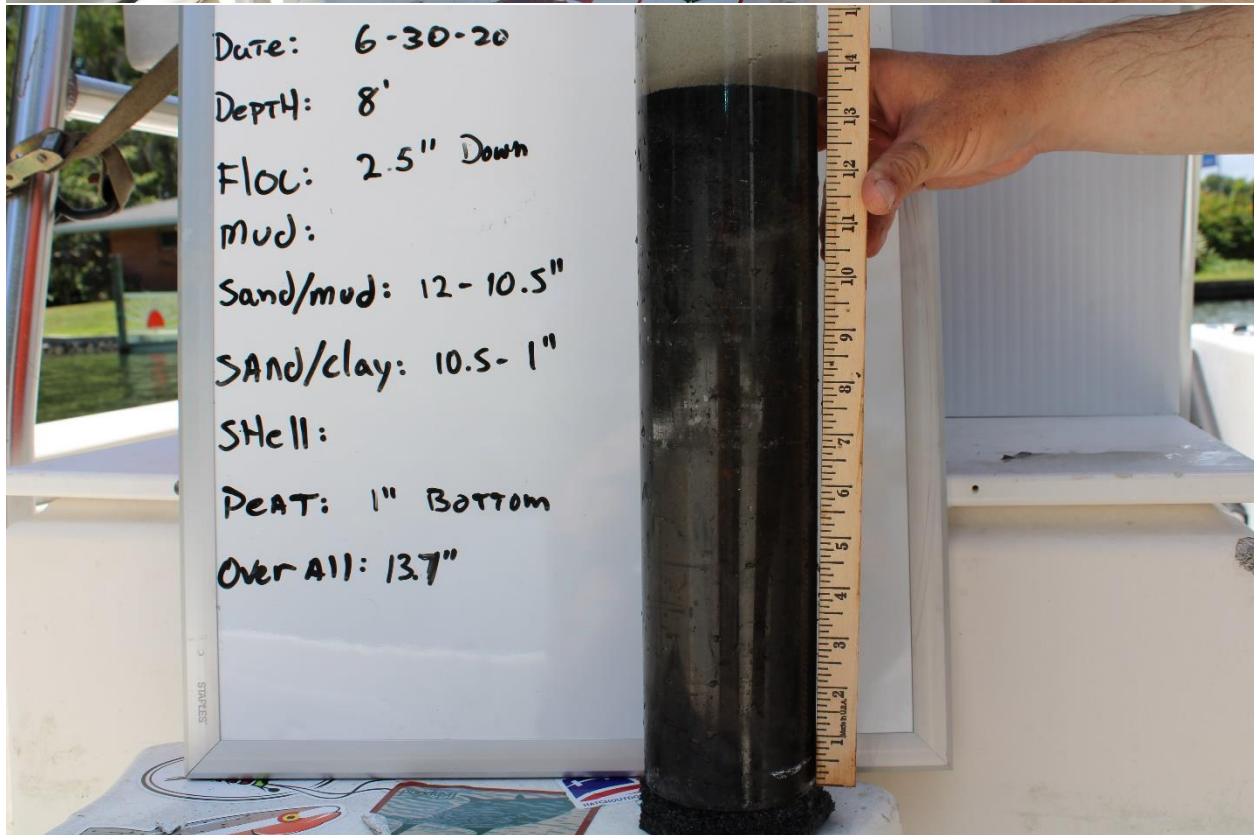 Date: 6-30-20
DEPTH: 8'
Floc: 2.5" Down
mud:
Sand/mud: 12-10.5"
SAnd/clay: 10.5-1"
SHell:
PeAT: 1" BoTTom
Over All: 13.7"
STAPLES
14
13
12
11
10
9
8
7
6
5
4
3
2
1
Made in U.S.A.